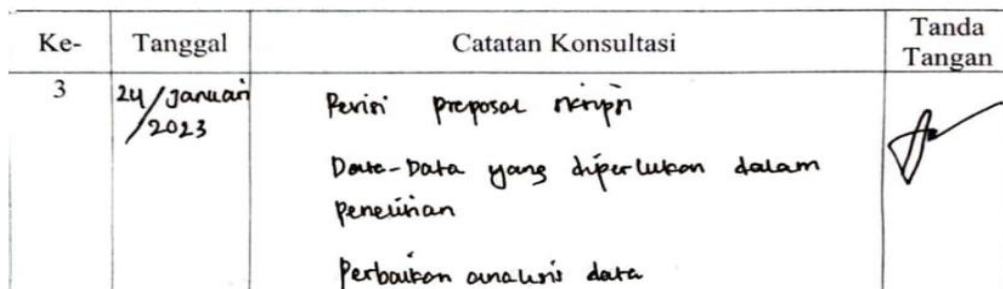 Ke- Tanggal Catatan Konsultasi Tanda Tangan
3 24/Januari/2023 Revisi preposal skripsi
Data-Data yang diperlukan dalam
penelitian
Perbaikan analisis data